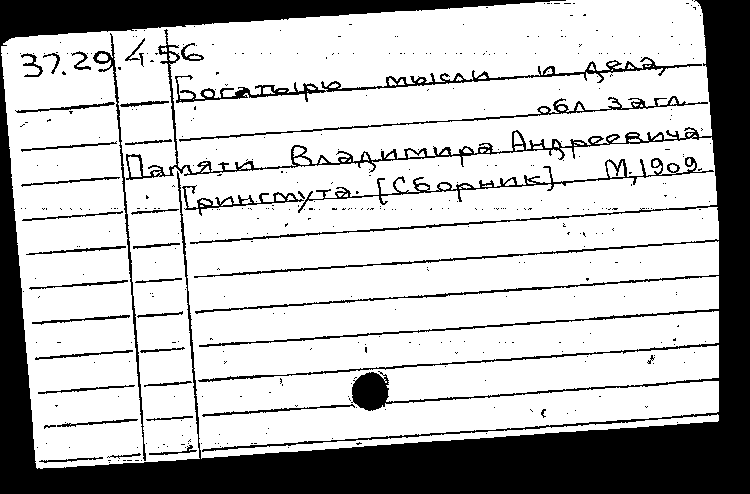 37.29.4.56
Богатырю мысли и дела,
обл загл
Памяти Владимира Андреевича
Грингмута. [Сборник]. М, 1909.